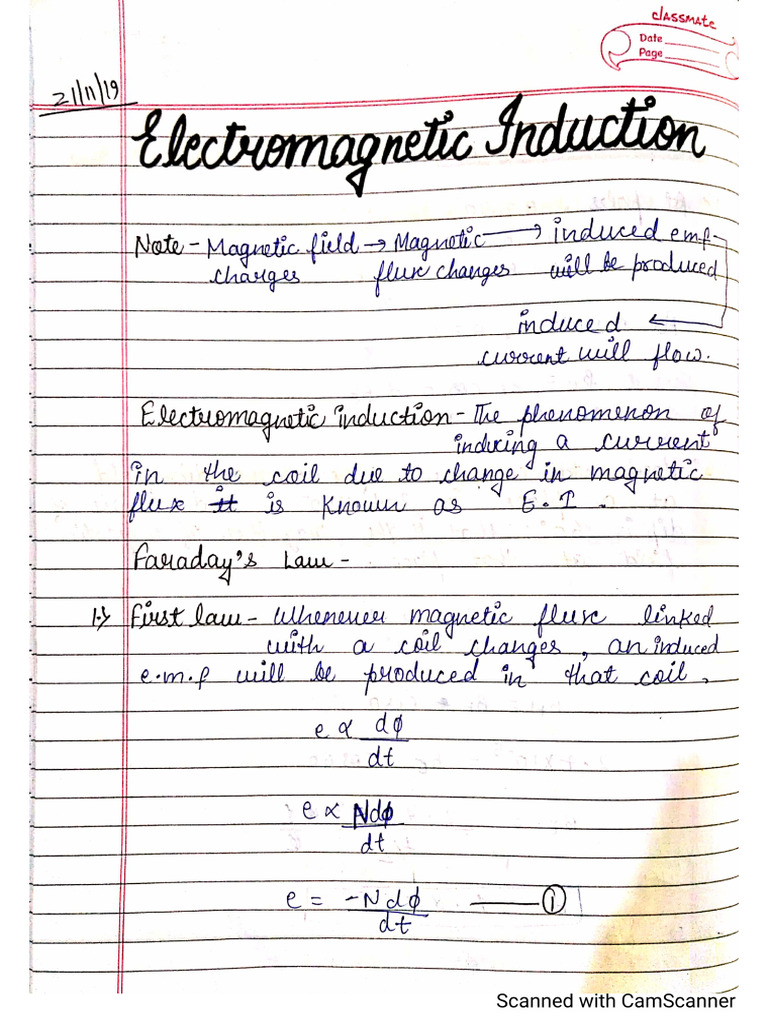 classmate
Date
Page
21/11/19
Electromagnetic Induction
Note - Magnetic field → Magnetic → induced emf
charges flux changes will be produced
induced ←
current will flow.
Electromagnetic induction - The phenomenon of
inducing a current
in the coil due to change in magnetic
flux it is known as E.I.
Faraday's Law -
1.} First law - Whenever magnetic flux linked
with a coil changes, an induced
e.m.f will be produced in that coil.
e ∝ dϕ
dt
e ∝ Ndϕ
dt
e = -Ndϕ —— ①
dt
Scanned with CamScanner